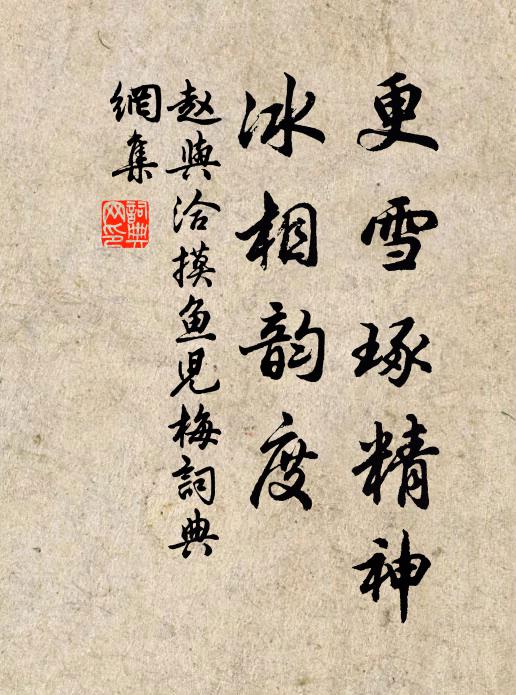 更雪琢精神
冰相韵度
赵与洽摸鱼児梅詞典
網集
詞典網印